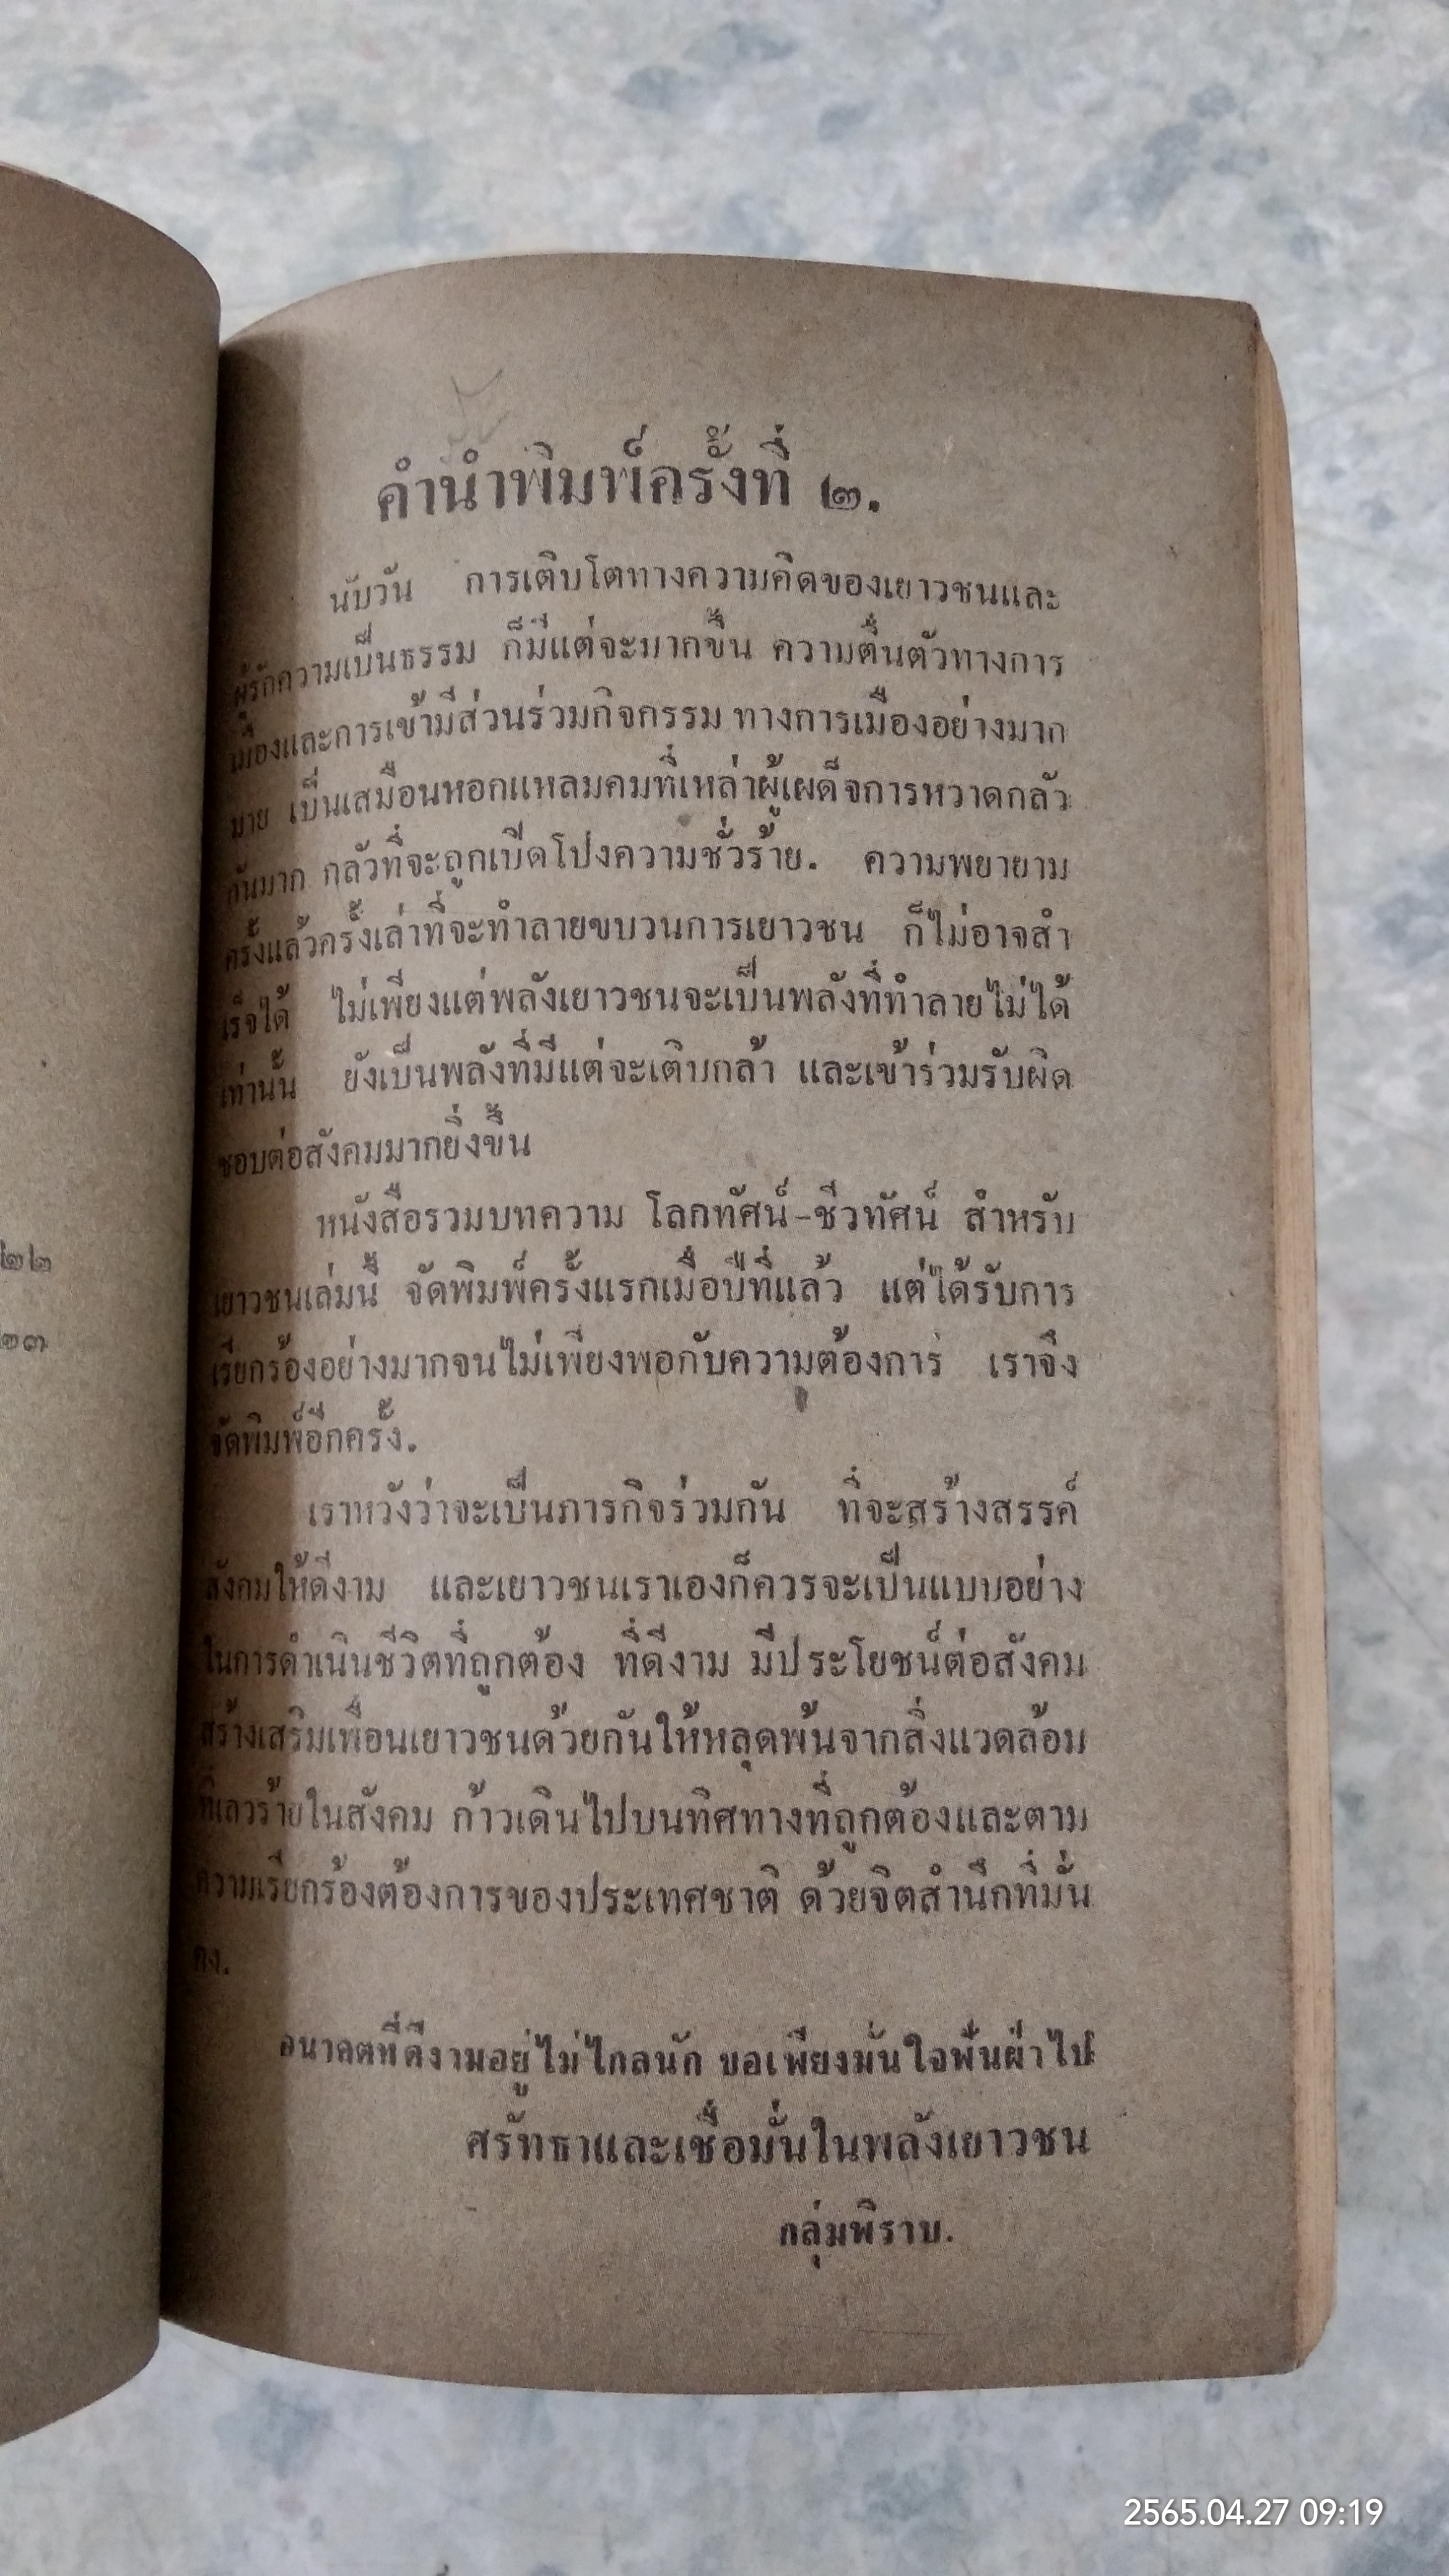 คำนำพิมพ์ครั้งที่ ๒.
นับวัน การเติบโตทางความคิดของเยาวชนและ
ผู้รักความเป็นธรรม ก็มีแต่จะมากขึ้น ความตื่นตัวทางการ
เมืองและการเข้ามีส่วนร่วมกิจกรรม ทางการเมืองอย่างมาก
มาย เป็นเสมือนหอกแหลมคมที่เหล่าผู้เผด็จการหวาดกลัว
กันมาก กลัวที่จะถูกเปิดโปงความชั่วร้าย. ความพยายาม
ครั้งแล้วครั้งเล่าที่จะทำลายขบวนการเยาวชน ก็ไม่อาจสำ
เร็จได้ ไม่เพียงแต่พลังเยาวชนจะเป็นพลังที่ทำลายไม่ได้
เท่านั้น ยังเป็นพลังที่มีแต่จะเติบกล้า และเข้าร่วมรับผิด
ชอบต่อสังคมมากยิ่งขึ้น
หนังสือรวมบทความ โลกทัศน์-ชีวทัศน์ สำหรับ
เยาวชนเล่มนี้ จัดพิมพ์ครั้งแรกเมื่อปีที่แล้ว แต่ได้รับการ
เรียกร้องอย่างมากจนไม่เพียงพอกับความต้องการ เราจึง
จัดพิมพ์อีกครั้ง.
เราหวังว่าจะเป็นภารกิจร่วมกัน ที่จะสร้างสรรค์
สังคมให้ดีงาม และเยาวชนเราเองก็ควรจะเป็นแบบอย่าง
ในการดำเนินชีวิตที่ถูกต้อง ที่ดีงาม มีประโยชน์ต่อสังคม
สร้างเสริมเพื่อนเยาวชนด้วยกันให้หลุดพ้นจากสิ่งแวดล้อม
ที่เลวร้ายในสังคม ก้าวเดินไปบนทิศทางที่ถูกต้องและตาม
ความเรียกร้องต้องการของประเทศชาติ ด้วยจิตสำนึกที่มั่น
คง.
อนาคตที่ดีงามอยู่ไม่ไกลนัก ขอเพียงมั่นใจฟันฝ่าไป
ศรัทธาและเชื่อมั่นในพลังเยาวชน
กลุ่มพิราบ.
๒๒
๒๓
2565.04.27 09:19